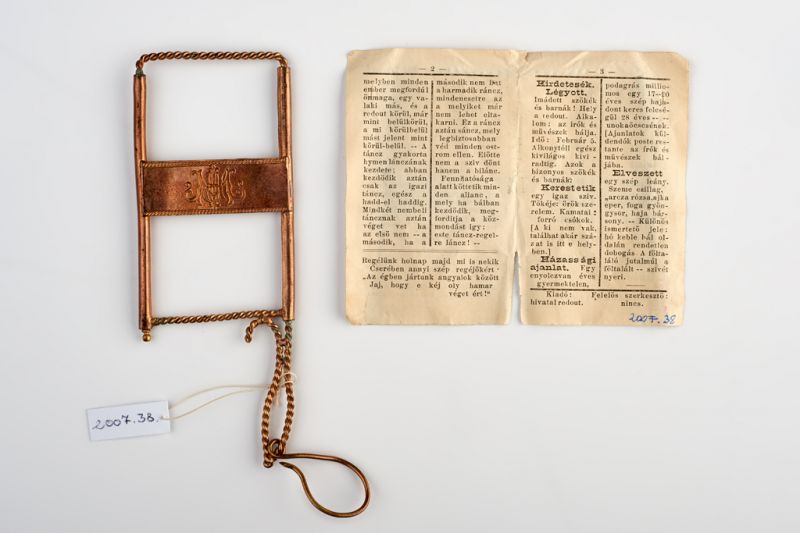 — 2 —
melyben minden
ember megfordúl
önmaga, egy va-
laki más, és a
redout körül, már
mint belülkörül,
a mi körülbelül
mást jelent mint
körül-belül. — A
táncz gyakorta
hymen lánczának
kezdete; abban
kezdődik aztán
csak az igazi
táncz, egész a
hadd-el haddig.
Mindkét nembeli
táncznak aztán
véget vet ha
az első nem — a
második, ha a
második nem
a harmadik ráncz,
mindeneseire az
a melyiket már
nem lehet elta-
karni. Ez a ráncz
aztán sáncz, mely
legbiztosabban
véd minden ost-
rom ellen. Előtte
nem a szív dönt
hanem a biláne.
Fennátósága
alatt köttetik min-
den alianc, a
mely ha bálban
kezdődik, meg-
fordítja a köz-
mondást így:
este táncz-regel-
re láncz! —
Regélünk holnap majd mi is nekik
Cserében annyi szép regéjökért·
„Az égben jártunk angyalok között
Jaj, hogy e kéj oly hamar
véget ért!"
— 3 —
Hirdetesék.
Légyott.
Imádott szőkék
és barnák! Hely
a redout. Alka-
lom: az irók és
művészek bálja.
Idő: Február 5.
Alkonytól egész
kivilágos kivi-
radtig. Azok a
bizonyos szőkék
és barnák!
Kerestetik
egy igaz sziv.
Tőkéje: örök sze-
relem. Kamatai:
forró csókok.
[A ki nem vak,
találhat akár szá-
zat is itt e hely-
ben.]
Házassági
ajanlat. Egy
enyolczvan éves
gyermektelen,
podagrás millio-
mos egy 17—20
éves szép haja-
dont keres felesé-
gül 28 éves —
unokaöcscsének.
[Ajánlatok kül-
dendők poste res-
tante az irók és
művészek bál-
jába.
Elveszett
egy szép leány.
Szeme csillag,
arcza rózsa, ajka
eper, foga gyön-
gysor, haja bár-
sony. — Különös
ismertető jele:
hó keble bal ol-
dalán rendetlen
dobogás A fölta-
láló jutalmúl a
föltalált — szivét
nyeri.
Kiadó: Felelős szerkesztő:
hivatal redout. nincs.
2007.38
2007.38.